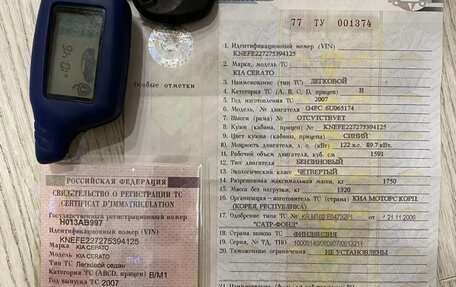 77 ТУ 001374
Особые отметки
1. Идентификационный номер (VIN)
KNEFE227275394125
2. Марка, модель ТС
KIA CERATO
3. Наименование (тип ТС) ЛЕГКОВОЙ
4. Категория ТС (А, В, С, D, прицеп) В
5. Год изготовления ТС 2007
6. Модель, № двигателя G4FC 6U065174
7. Шасси (рама) № ОТСУТСТВУЕТ
8. Кузов (кабина, прицеп) № KNEFE227275394125
9. Цвет кузова (кабины, прицепа) СИНИЙ
10. Мощность двигателя, л. с. (кВт) 122 л.с. 89.7 кВт.
11. Рабочий объем двигателя, куб. см 1591
12. Тип двигателя БЕНЗИНОВЫЙ
13. Экологический класс ЧЕТВЕРТЫЙ
14. Разрешенная максимальная масса, кг 1750
15. Масса без нагрузки, кг 1320
16. Организация-изготовитель ТС (страна) КИА МОТОРС КОРП
(КОРЕЯ, РЕСПУБЛИКА)
17. Одобрение типа ТС № от 21.11.2006
"САТР-ФОНД"
18. Страна вывоза ТС ФИНЛЯНДИЯ
19. Серия, № ТД, ТПО
20. Таможенные ограничения НЕ УСТАНОВЛЕНЫ
РОССИЙСКАЯ ФЕДЕРАЦИЯ
СВИДЕТЕЛЬСТВО О РЕГИСТРАЦИИ ТС
CERTIFICAT D'IMMATRICULATION
Государственный регистрационный номер
Н013АВ997
Идентификационный номер (VIN)
KNEFE227275394125
Марка KIA CERATO
Модель KIA CERATO
Тип ТС Легковой седан
Категория ТС (ABCD, прицеп) B/M1
Год выпуска ТС 2007